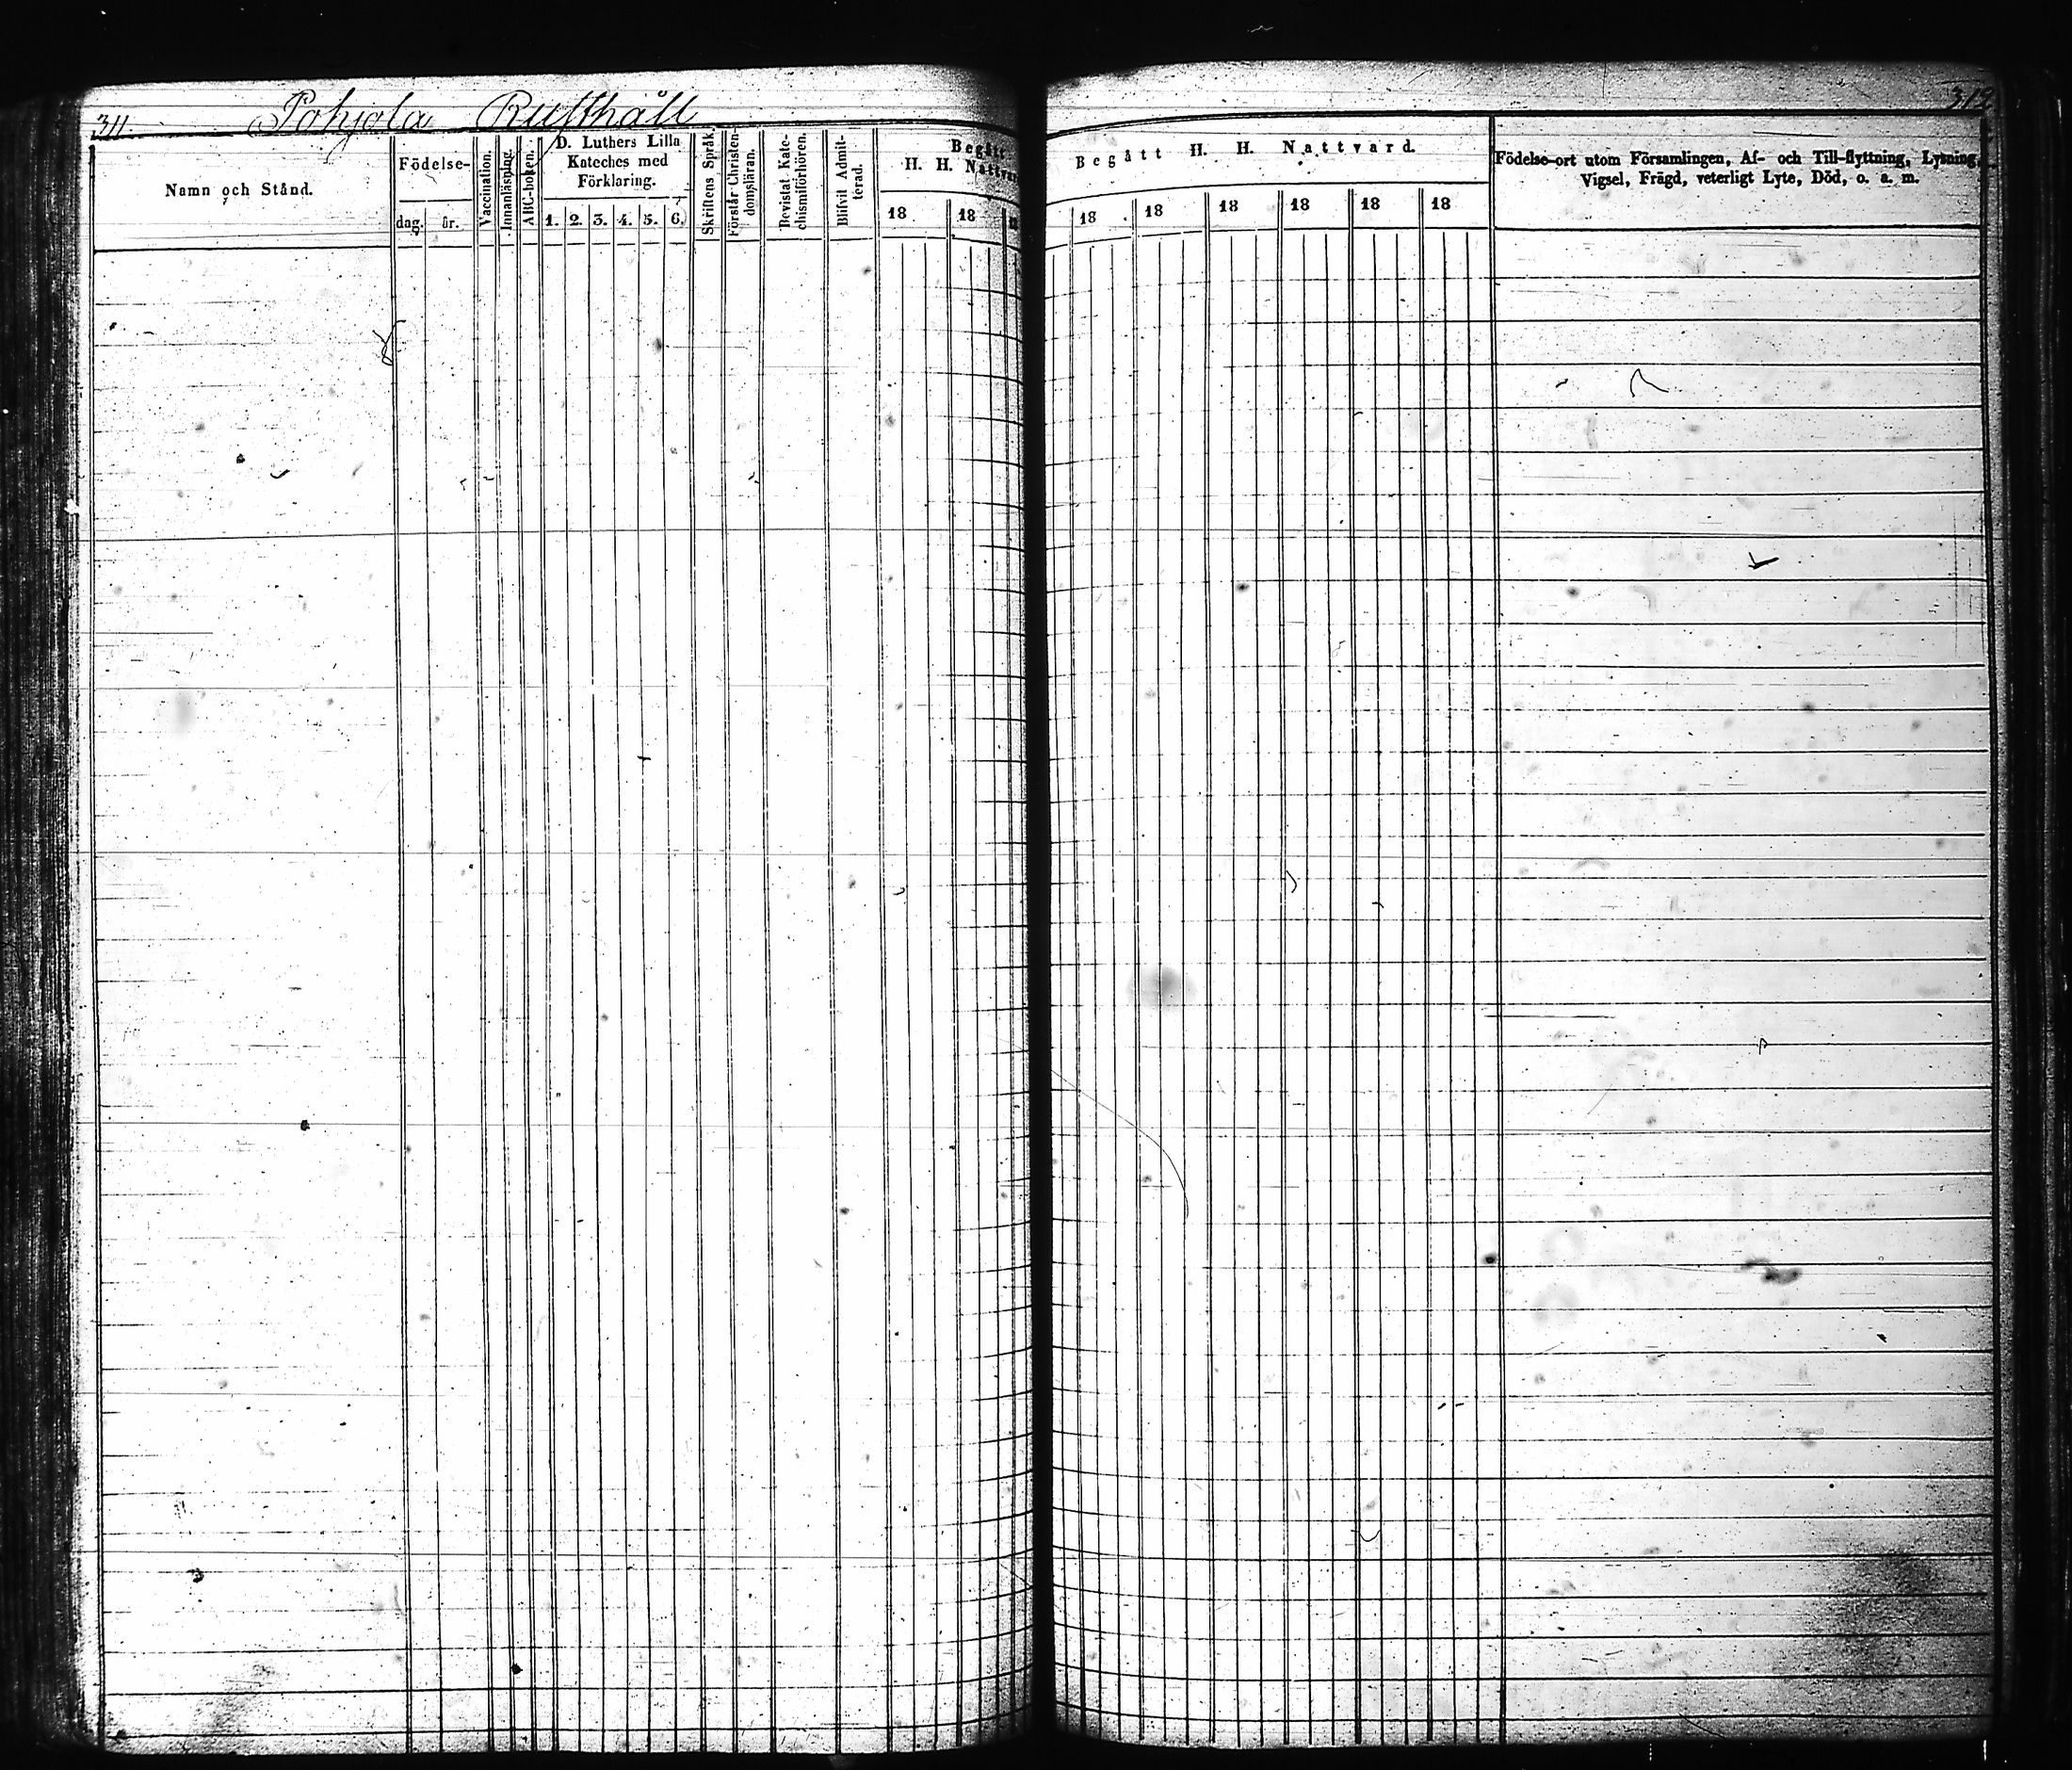 311. Pohjola Rusthåll
Namn och Stånd.
Födelse-
dag. år.
Vaccination.
Innanläsning.
ABC-boken.
D. Luthers Lilla
Kateches med
Förklaring.
1. 2. 3. 4. 5. 6.
Skriftens Språk.
Förstår Christen-
domsläran.
Bevistat Kate-
chismiförhören.
Blifvit Admit-
terad.
Begått
H. H. Nattvard
18 18
312
Begått H. H. Nattvard.
18 18 18 18 18 18
Födelse-ort utom Församlingen, Af- och Till-flyttning, Lysning,
Vigsel, Frägd, veterligt Lyte, Död, o. a. m.